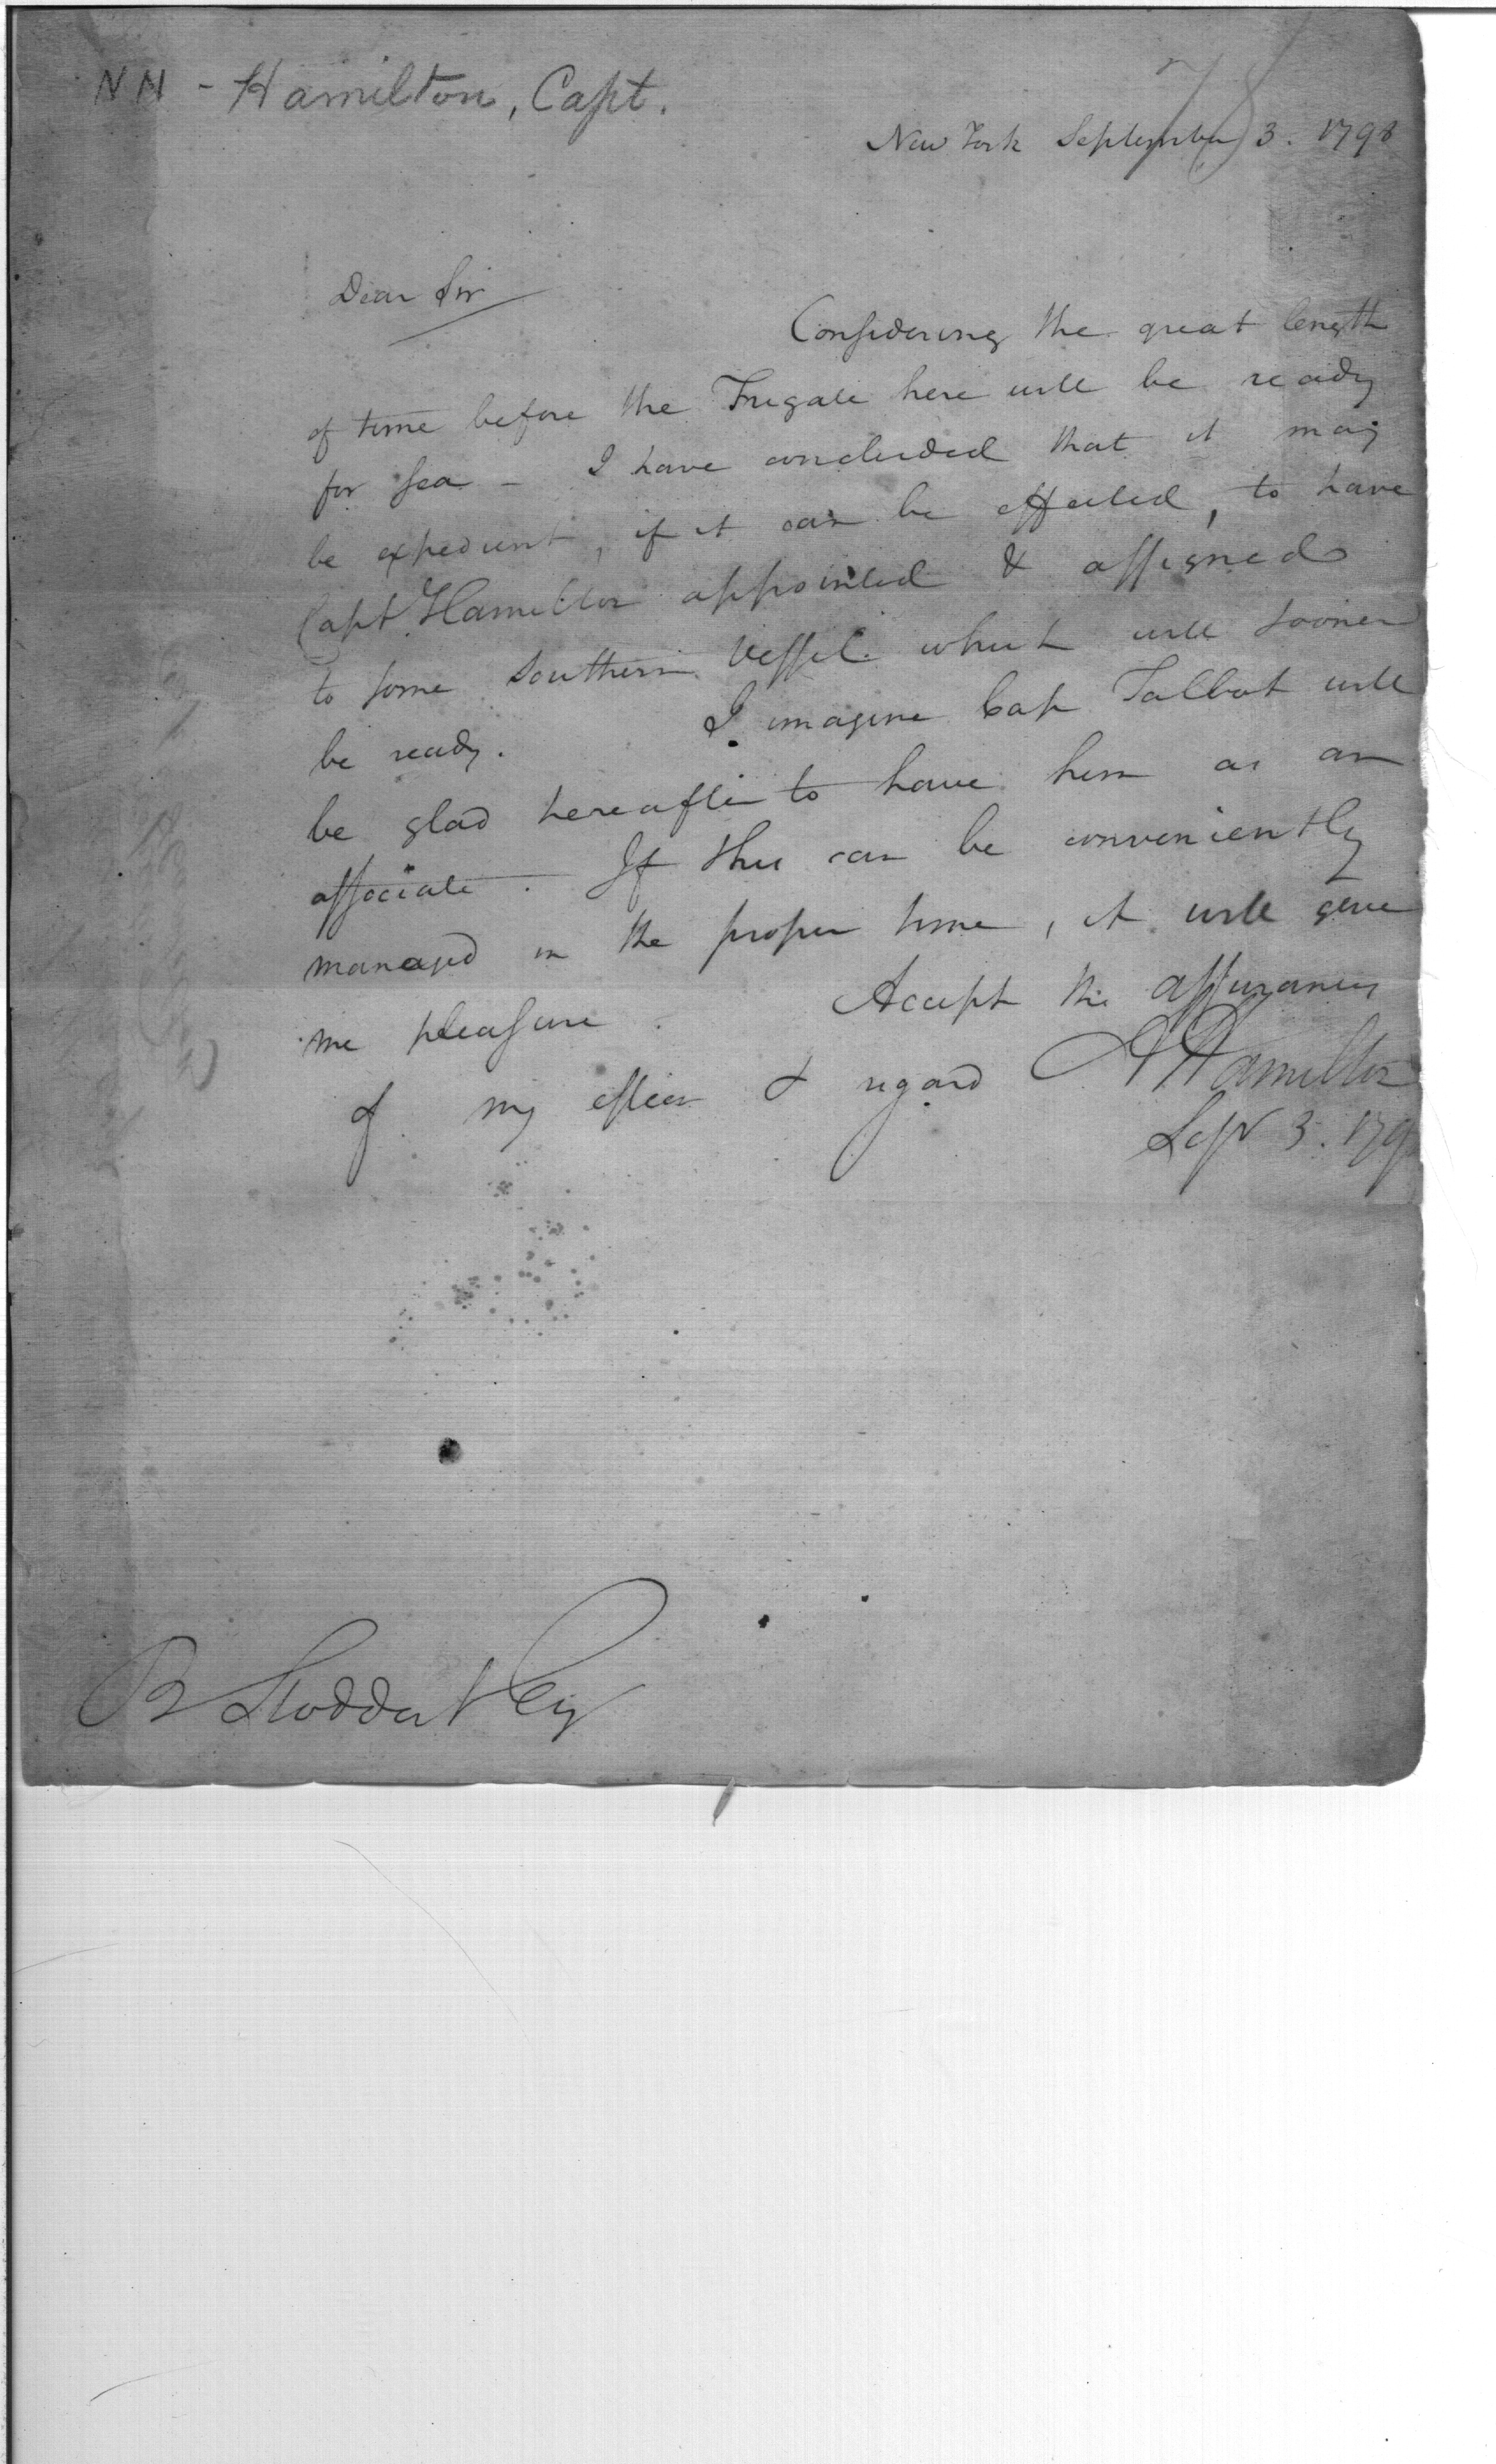 NN - Hamilton, Capt.
New York September 3. 1798
Dear Sir
Considering the great length
of time before the Frigate here will be ready
for sea - I have concluded that it may
be expedient, if it can be effected, to have
Capt Hamilton appointed & assigned
to some southern vessel which will sooner
be ready. I imagine Cap Talbot will
be glad hereafter to have him as an
associate. If this can be conveniently
managed in the proper time, it will give
me pleasure. Accept the assurances
of my esteem & regard A Hamilton
Sepr 3. 179
B Stoddert Esq